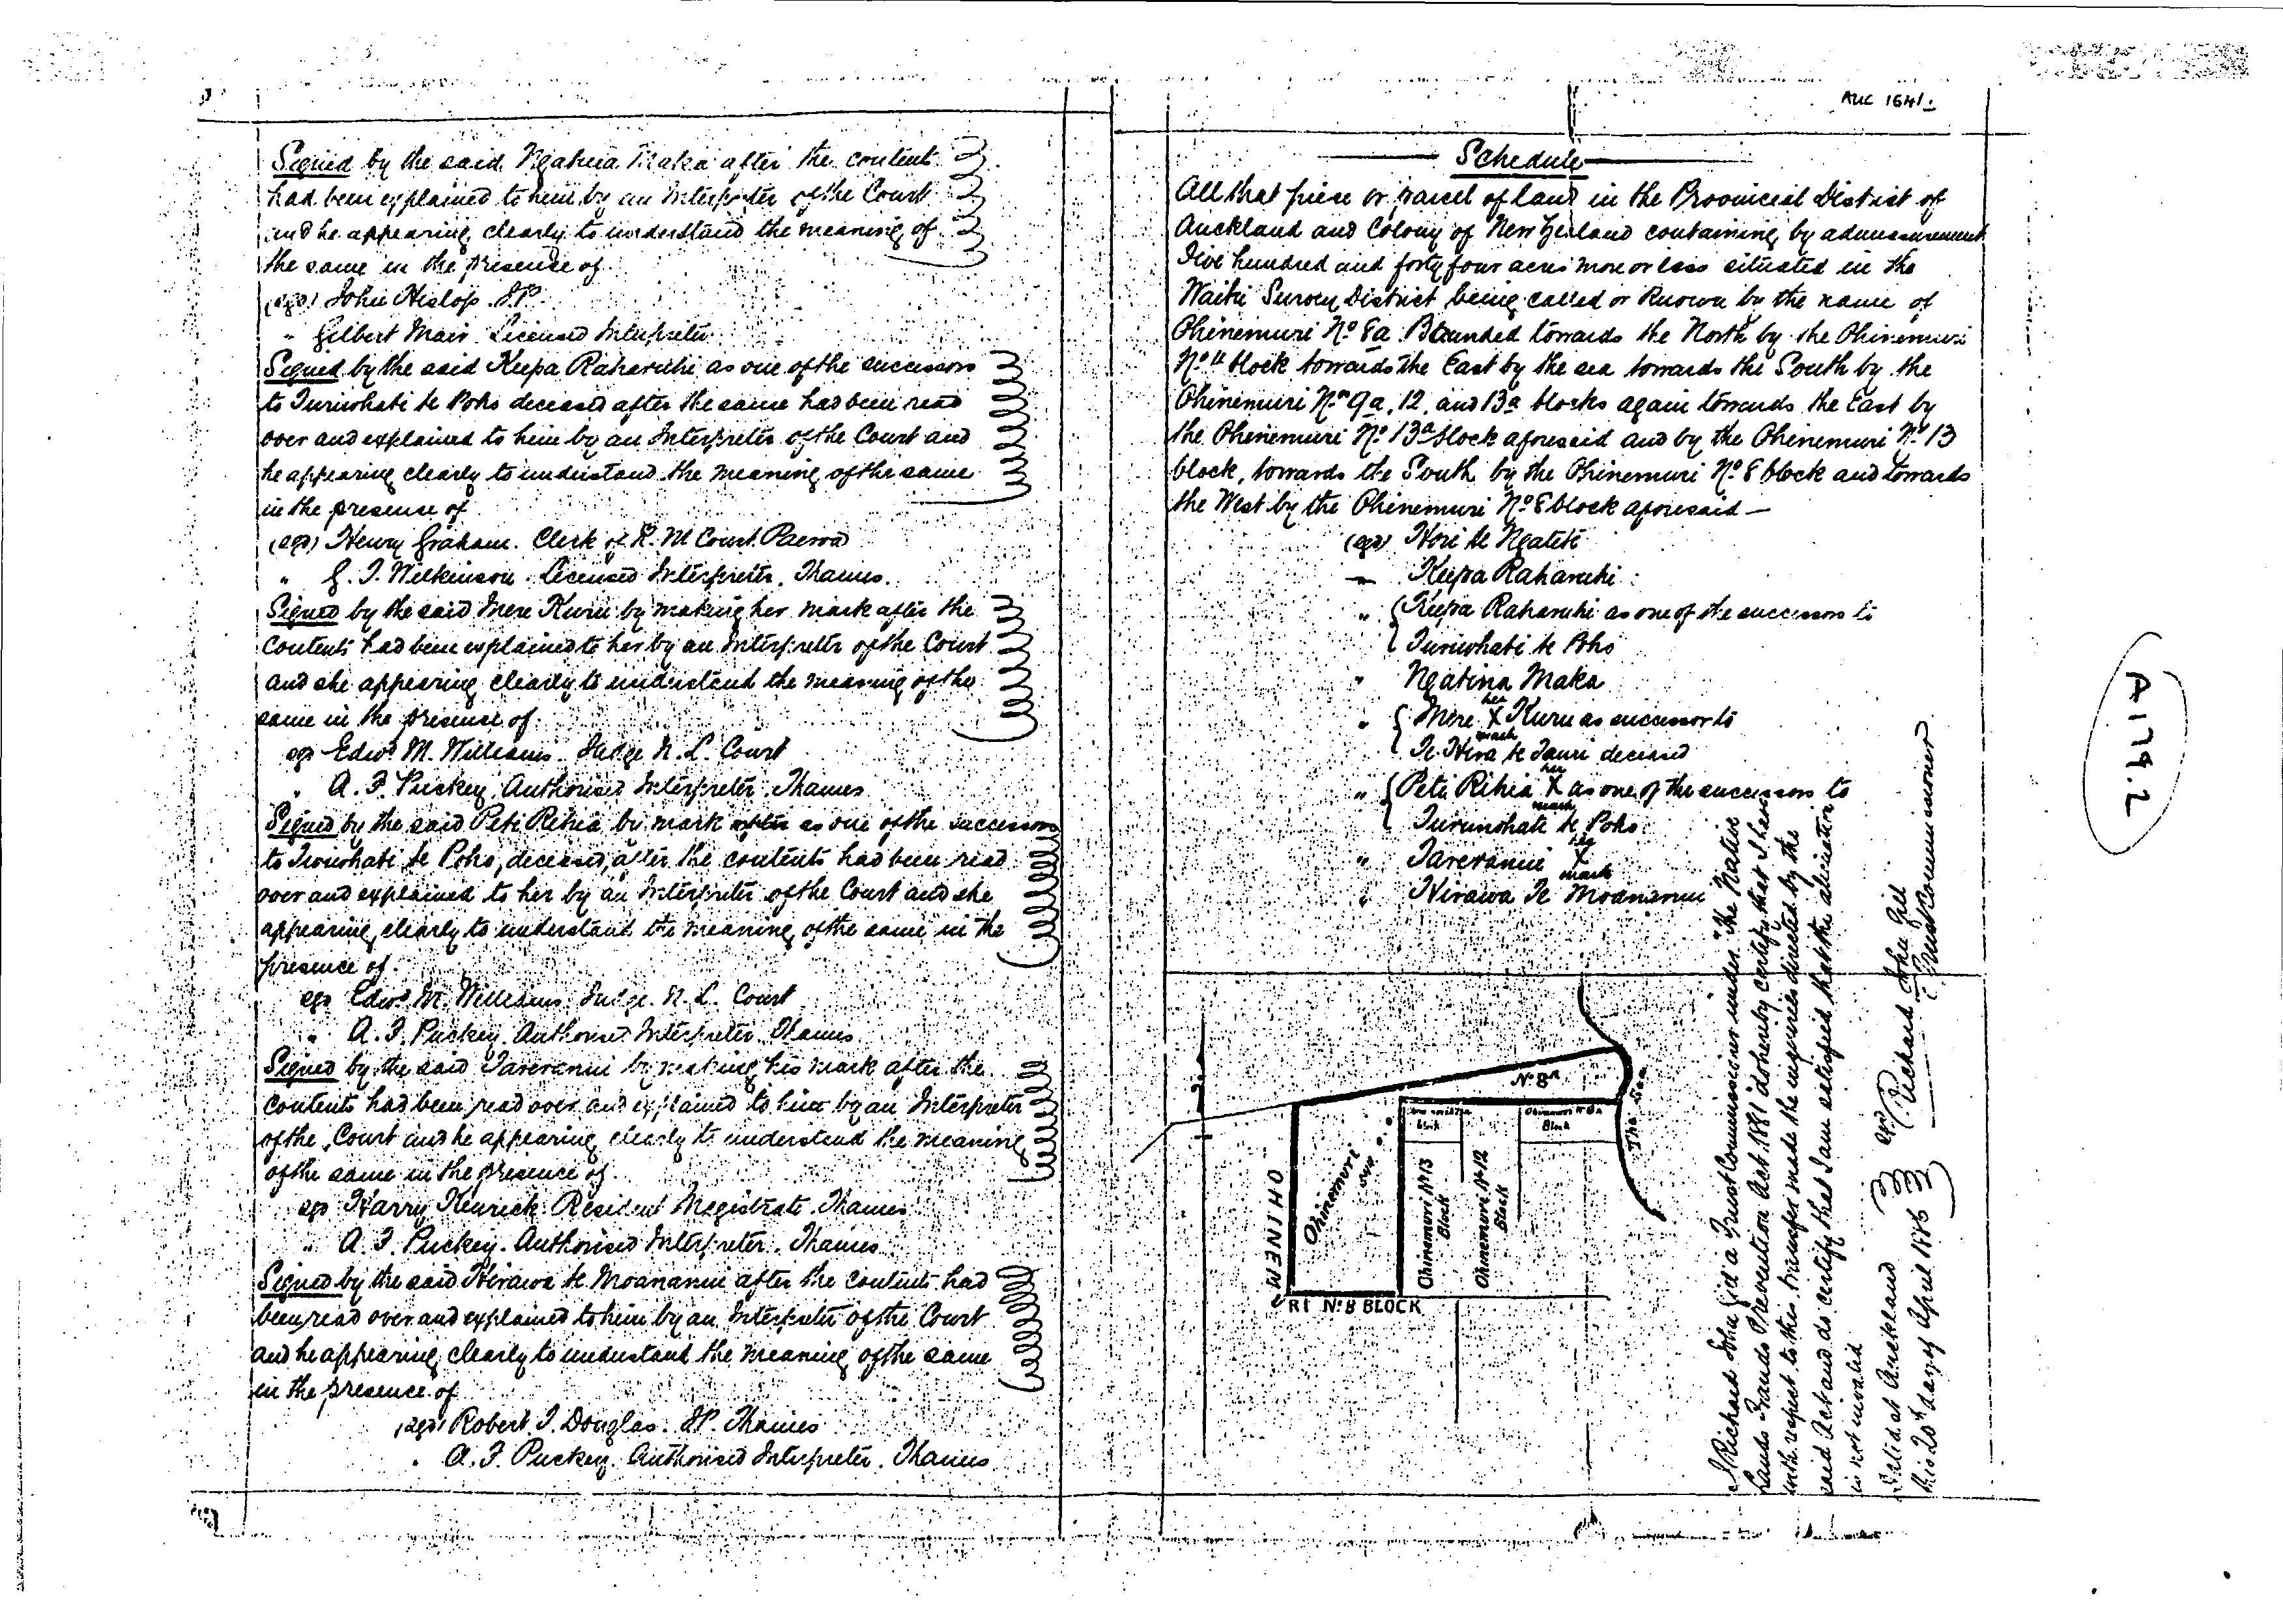 AUC 1641
Signed by the said Ngatina Maka after the content
had been explained to him by an Interpreter of the Court
and he appearing clearly to understand the meaning of
the same in the presence of
(sgd) John Hislop. J.P.
" Gilbert Mair Licensed Interpreter
Signed by the said Keepa Raharuhi as one of the successors
to Turiwhati te Poho deceased after the same had been read
over and explained to him by an Interpreter of the Court and
he appearing clearly to understand the meaning of the same
in the presence of
(sgd) Henry Graham. Clerk of R. M Court Paeroa
" G. T. Wilkinson. Licensed Interpreter, Thames.
Signed by the said Mere Kuru by making her mark after the
contents had been explained to her by an Interpreter of the Court
and she appearing clearly to understand the meaning of the
same in the presence of
sgd Edwd M. Williams. Judge N. L. Court
" A. F. Puckey, Authorised Interpreter. Thames
Signed by the said Peti Rihia by mark as one of the successors
to Turiwhati te Poho, deceased, after the contents had been read
over and explained to her by an Interpreter of the Court and she
appearing clearly to understand the meaning of the same in the
presence of
sgd Edwd M. Williams Judge. N. L. Court
" A. F. Puckey. Authorised Interpreter. Thames
Signed by the said Tareranui by making his mark after the
contents had been read over and explained to him by an Interpreter
of the Court and he appearing clearly to understand the meaning
of the same in the presence of
sgd Harry Kenrick Resident Magistrate. Thames
" A. F. Puckey. Authorised Interpreter. Thames
Signed by the said Hirawa te Moananui after the contents had
been read over and explained to him by an Interpreter of the Court
and he appearing clearly to understand the meaning of the same
in the presence of
(sgd) Robert T. Douglas. J.P. Thames
" A. F. Puckey. Authorised Interpreter. Thames
Schedule
All that piece or parcel of land in the Provincial District of
Auckland and Colony of New Zealand containing by admeasurement
Five hundred and forty four acres more or less situated in the
Survey District being called or known by the name of
Ohinemuri No 8a Bounded towards the North by the Ohinemuri
block towards the East by the sea towards the South by the
Ohinemuri Nos 9a, 12, and 13a blocks again towards the East by
the Ohinemuri No 13a block aforesaid and by the Ohinemuri No 13
block, towards the South by the Ohinemuri No 8 block and towards
the West by the Ohinemuri No 8 block aforesaid —
(sgd) Hori te Ngatete
" Keepa Raharuhi
" Keepa Raharuhi as one of the successors to
Turiwhati te Poho
" Ngatina Maka
her
" Mere X Kuru as successor to
mark
Te Hira te Tauri deceased
her
" Peti Rihia X as one of the successors to
mark
Turiwhati te Poho
his
" Tareranui X
mark
" Hirawa Te Moananui
No 8A
The Sea
Block
Block
Ohinemuri
Ohinemuri No 13
Block
Ohinemuri No 12
Block
OHINEM
URI No 8 BLOCK
I Richard John Gill a Trust Commissioner under "The Native
Lands Frauds Prevention Act 1881" do hereby certify that I have
with respect to this transfer made the inquiries directed by the
said Act and do certify that I am satisfied that the alienation
is not invalid
Dated at Auckland
this 20th day of April 1886
sgd Richard John Gill
Trust Commissioner
A179.2